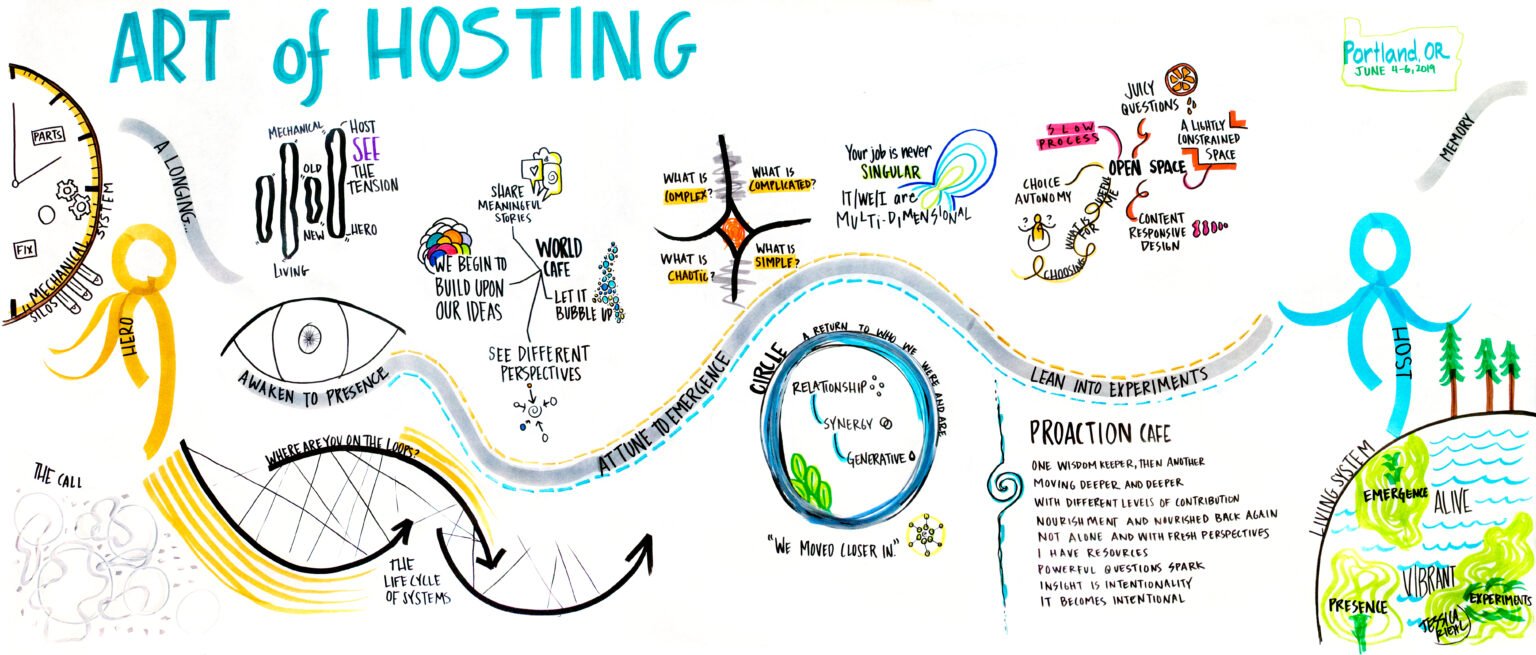 ART of HOSTING
Portland, OR
JUNE 4-6, 2019
PARTS
FIX
MECHANICAL
SYSTEM
SILOS
HERO
A LONGING...
MECHANICAL
OLD
NEW
LIVING
HOST
SEE
THE
TENSION
HERO
AWAKEN TO PRESENCE
THE CALL
WHERE ARE YOU ON THE LOOPS?
THE
LIFE CYCLE
OF SYSTEMS
SHARE
MEANINGFUL
STORIES
WORLD
CAFE
WE BEGIN TO
BUILD UPON
OUR IDEAS
LET IT
BUBBLE UP
SEE DIFFERENT
PERSPECTIVES
ATTUNE TO EMERGENCE
WHAT IS
COMPLEX?
WHAT IS
COMPLICATED?
WHAT IS
CHAOTIC?
WHAT IS
SIMPLE?
Your job is never
SINGULAR
IT/WE/I are
MULTI-DIMENSIONAL
CIRCLE
A RETURN TO WHO WE WERE AND ARE
RELATIONSHIP
SYNERGY
GENERATIVE
"WE MOVED CLOSER IN"
JUICY
QUESTIONS
SLOW
PROCESS
A LIGHTLY
CONSTRAINED
SPACE
OPEN SPACE
CHOICE
AUTONOMY
? ?
CHOOSING
WHAT IS
FOR
USEFUL
ME
CONTENT
RESPONSIVE
DESIGN
LEAN INTO EXPERIMENTS
PROACTION CAFE
ONE WISDOM KEEPER, THEN ANOTHER
MOVING DEEPER AND DEEPER
WITH DIFFERENT LEVELS OF CONTRIBUTION
NOURISHMENT AND NOURISHED BACK AGAIN
NOT ALONE AND WITH FRESH PERSPECTIVES
I HAVE RESOURCES
POWERFUL QUESTIONS SPARK
INSIGHT IS INTENTIONALITY
IT BECOMES INTENTIONAL
MEMORY
HOST
LIVING SYSTEM
EMERGENCE
ALIVE
VIBRANT
PRESENCE
EXPERIMENTS
JESSICA
RIEHL